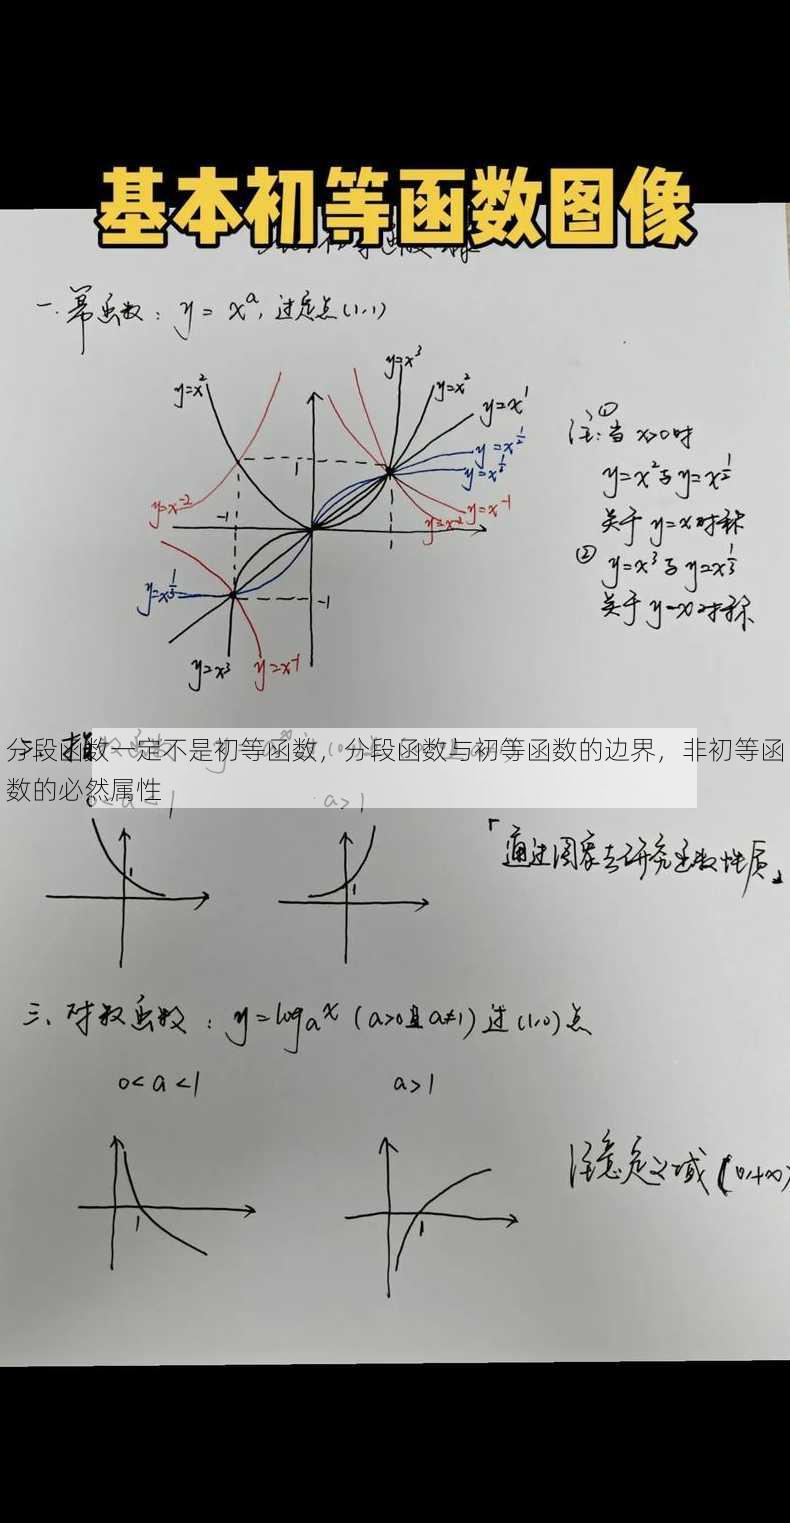 基本初等函数图像
一.幂函数：y = xᵃ，过定点(1,1)
y=x³
y=x²
y=x²
y=x¹
y=x^½
y=x^⅓
1
y=x⁻²
-1
y=x⁻¹
y=x⁻²
1
y=x^⅓
-1
y=x³
y=x⁻¹
注：①当 x>0时
y=x²与y=x^½
关于 y=x对称
② y=x³与y=x^⅓
关于 y=x对称
分段函数一定不是初等函数，分段函数与初等函数的边界，非初等函
数的必然属性
a>1
1
1
「通过图象去研究函数性质」
三、对数函数：y=logₐx (a>0且a≠1) 过(1,0)点
0<a<1
a>1
注意定义域(0,+∞)
1
1